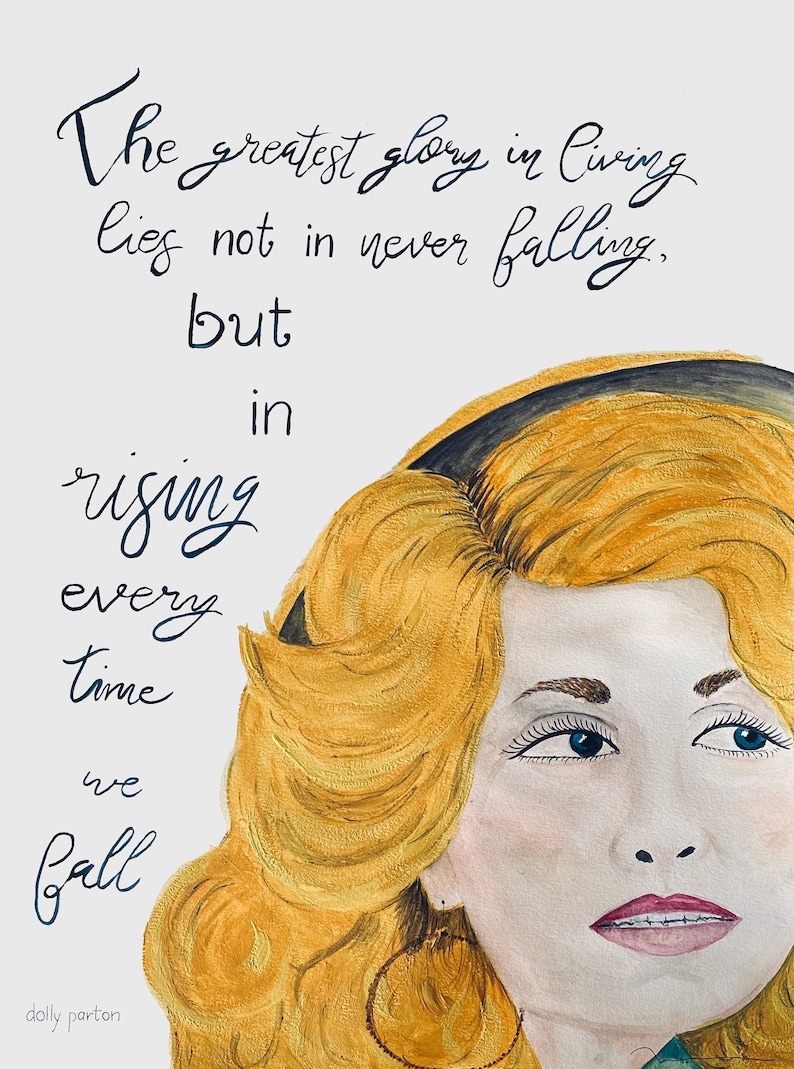 The greatest glory in living
lies not in never falling,
but
in
rising
every
time
we
fall
dolly parton